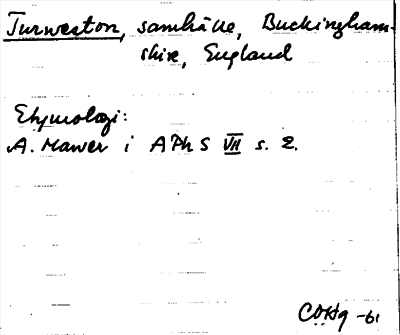 Turweston, samhälle, Buckingham-
shire, England
Etymologi:
A. Mawer i APhS VII s. 2.
-61